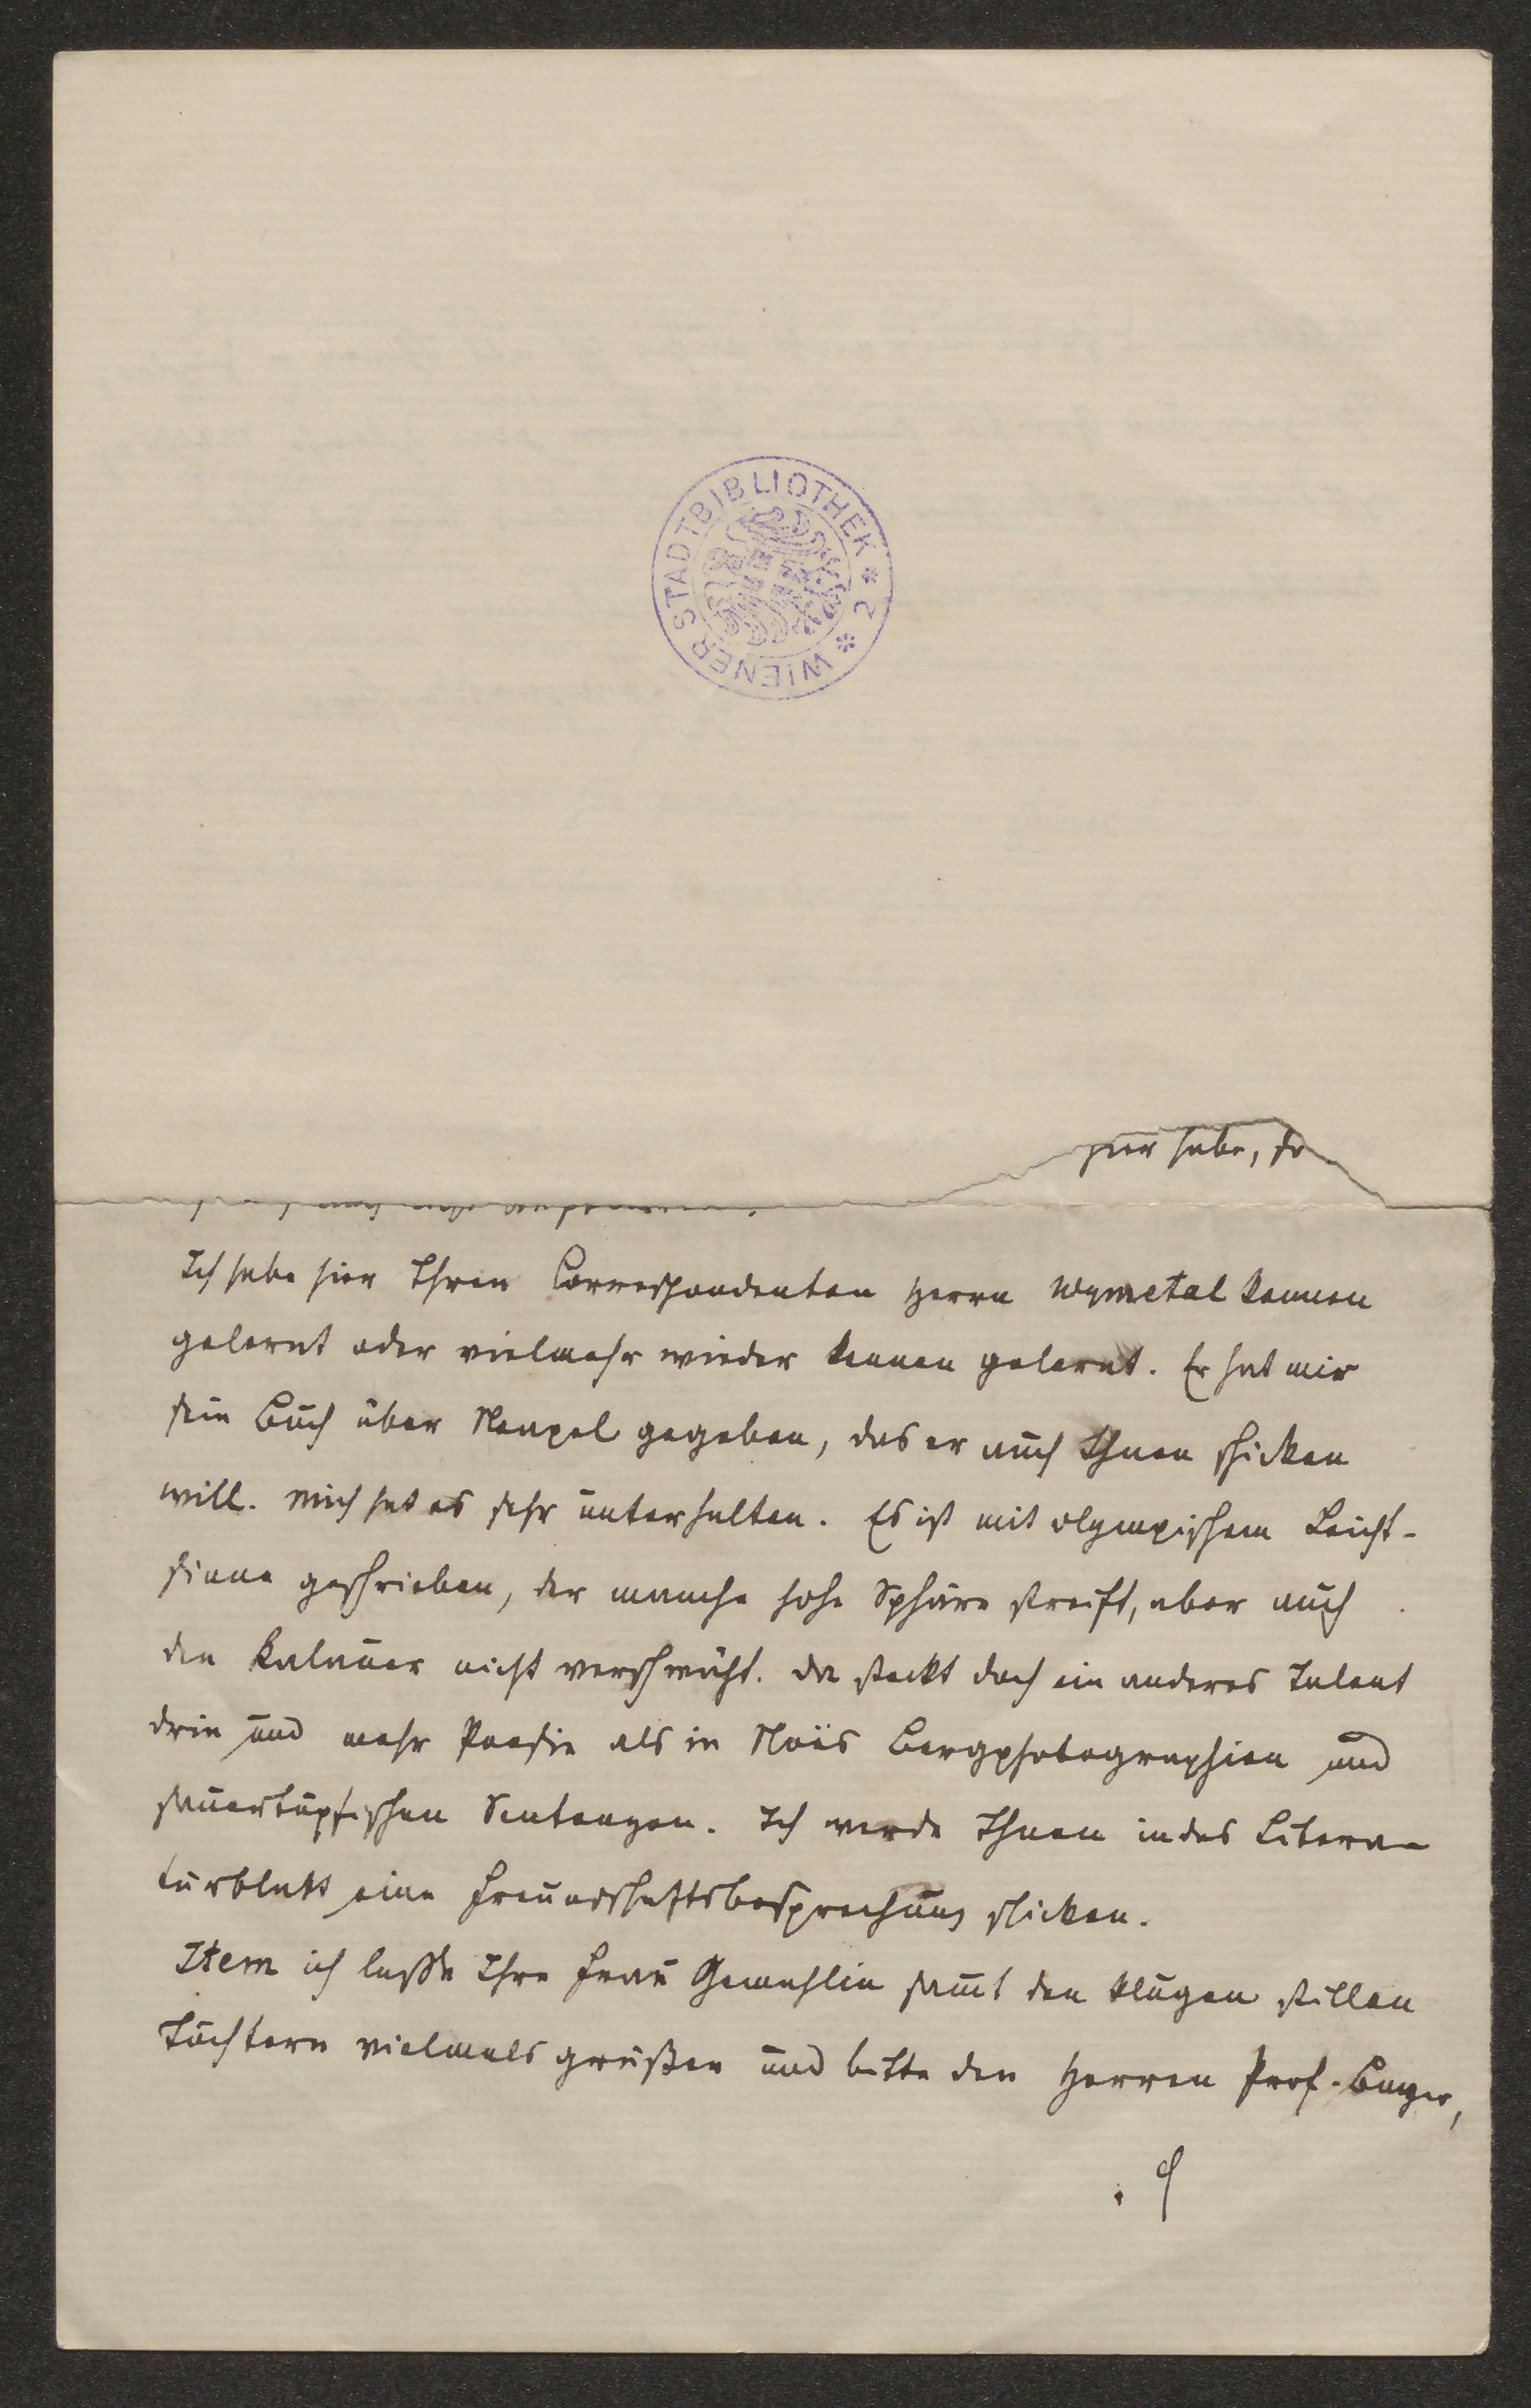 WIENER STADTBIBLIOTHEK * 2 *
habe, so
Ich habe hier Ihren Correspondenten Herrn Wymetal kennen
gelernt oder vielmehr wieder kennen gelernt. Er hat mir
sein Buch über Neapel gegeben, das er auch Ihnen schicken
will. Mich hat es sehr unterhalten. Es ist mit olympischem Leicht-
sinne geschrieben, der manche hohe Sphäre streift, aber auch
den Kalauer nicht verschmäht. Da steckt doch ein anderes Talent
drin und mehr Poesie als in Noës Bergphotographien und
sauertöpfischen Sentenzen. Ich werde Ihnen in das Litera-
turblatt eine Freundschaftsbesprechung schicken.
Item ich lasse Ihre Frau Gemahlin sammt den klugen stillen
Töchtern vielmals grüßen und bitte den Herren Prof. Bayer,